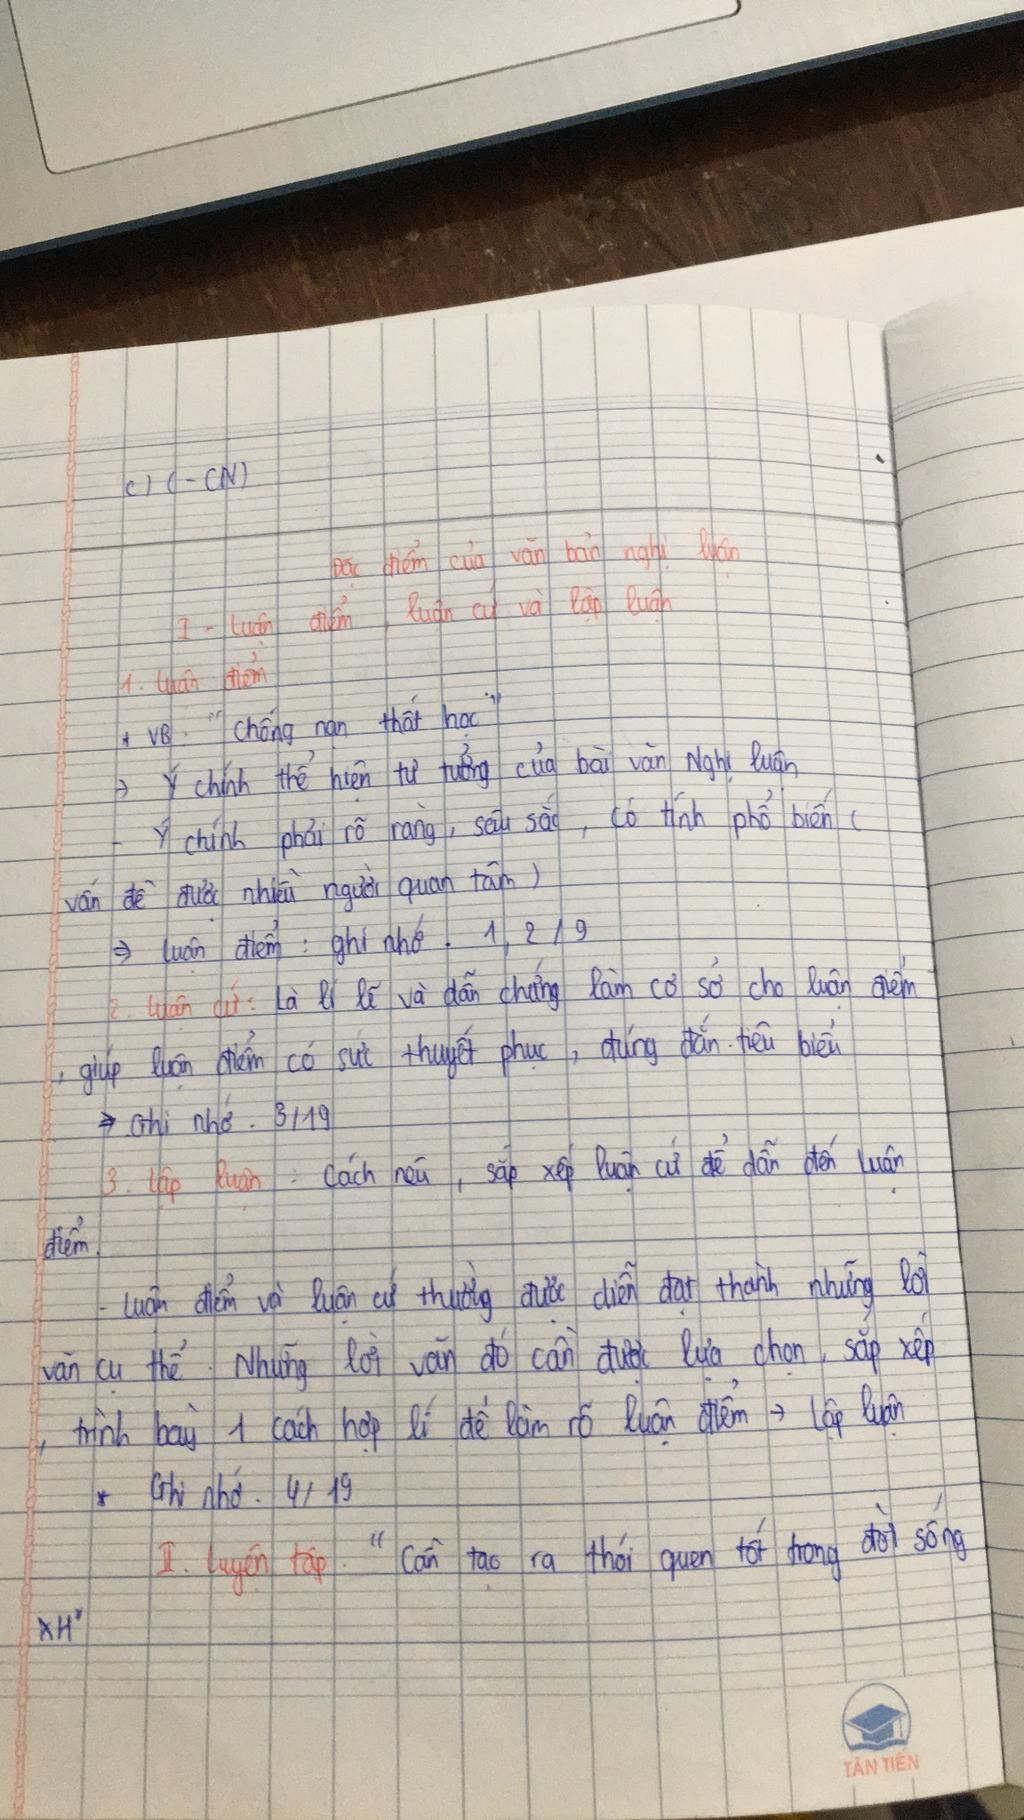 c) (-CN)
Đặc điểm của văn bản nghị luận
I - Luận điểm, luận cứ và lập luận
1. Luận điểm
* VB. "Chống nạn thất học"
→ Ý chính thể hiện tư tưởng của bài văn Nghị luận
- Ý chính phải rõ ràng, sâu sắc, có tính phổ biến (
vấn đề được nhiều người quan tâm)
⇒ Luận điểm: ghi nhớ. 1, 2/9
2. Luận cứ: Là lí lẽ và dẫn chứng làm cơ sở cho luận điểm
, giúp luận điểm có sức thuyết phục, đúng đắn. tiêu biểu
⇒ Ghi nhớ. 3/19
3. Lập luận: Cách nêu, sắp xếp luận cứ để dẫn đến luận
điểm.
- Luận điểm và luận cứ thường được diễn đạt thành những lời
văn cụ thể Những lời văn đó cần được lựa chọn, sắp xếp
, trình bày 1 cách hợp lí để làm rõ luận điểm → Lập luận
* Ghi nhớ. 4/19
II. Luyện tập. "Cần tạo ra thói quen tốt trong đời sống
XH"
TÂN TIẾN